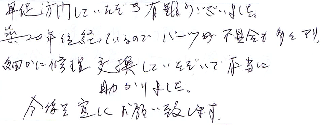 早急訪問していただき有難うございました。
20年位経っているので パーツ的 不具合も多々あり、
細かに修理 交換していただいて 本当に
助かりました。
今後も宜しくお願い致します。